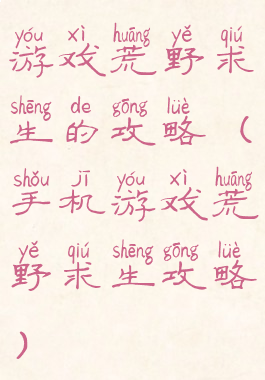 yóu xì huāng yě qiú
游戏荒野求
shēng de gōng lüè
生的攻略（
shǒu jī yóu xì huāng
手机游戏荒
yě qiú shēng gōng lüè
野求生攻略
）